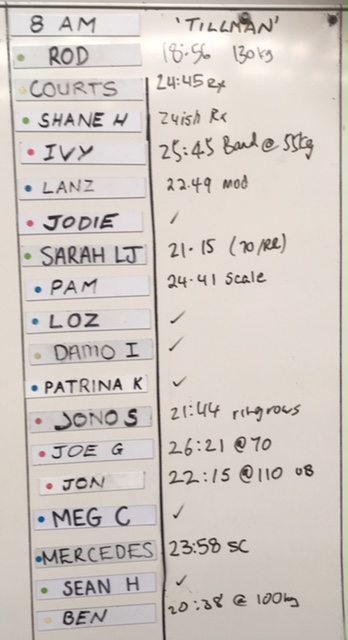 8 AM 'TILLMAN'
ROD 18:56 130kg
COURTS 24:45 Rx
SHANE H 24ish Rx
IVY 25:45 Band @ 55kg
LANZ 22:49 mod
JODIE ✓
SARAH LJ 21.15 (70/RR)
PAM 24.41 scale
LOZ ✓
DAMO I ✓
PATRINA K ✓
JONO S 21:44 ring rows
JOE G 26:21 @70
JON 22:15 @110 UB
MEG C ✓
MERCEDES 23:58 SC
SEAN H ✓
BEN 20:38 @ 100kg